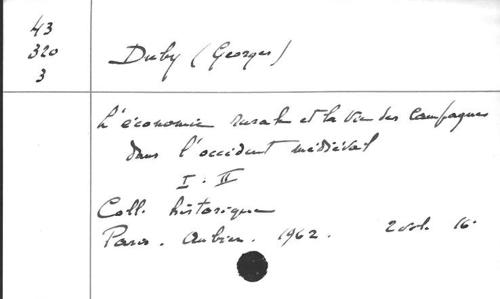 43
320
3
Duby (Georges)
L'économie rurale et la vie des campagnes
dans l'occident médiéval
I. II
Coll. historique
Paris. Aubier. 1962. 2 vol. 16°